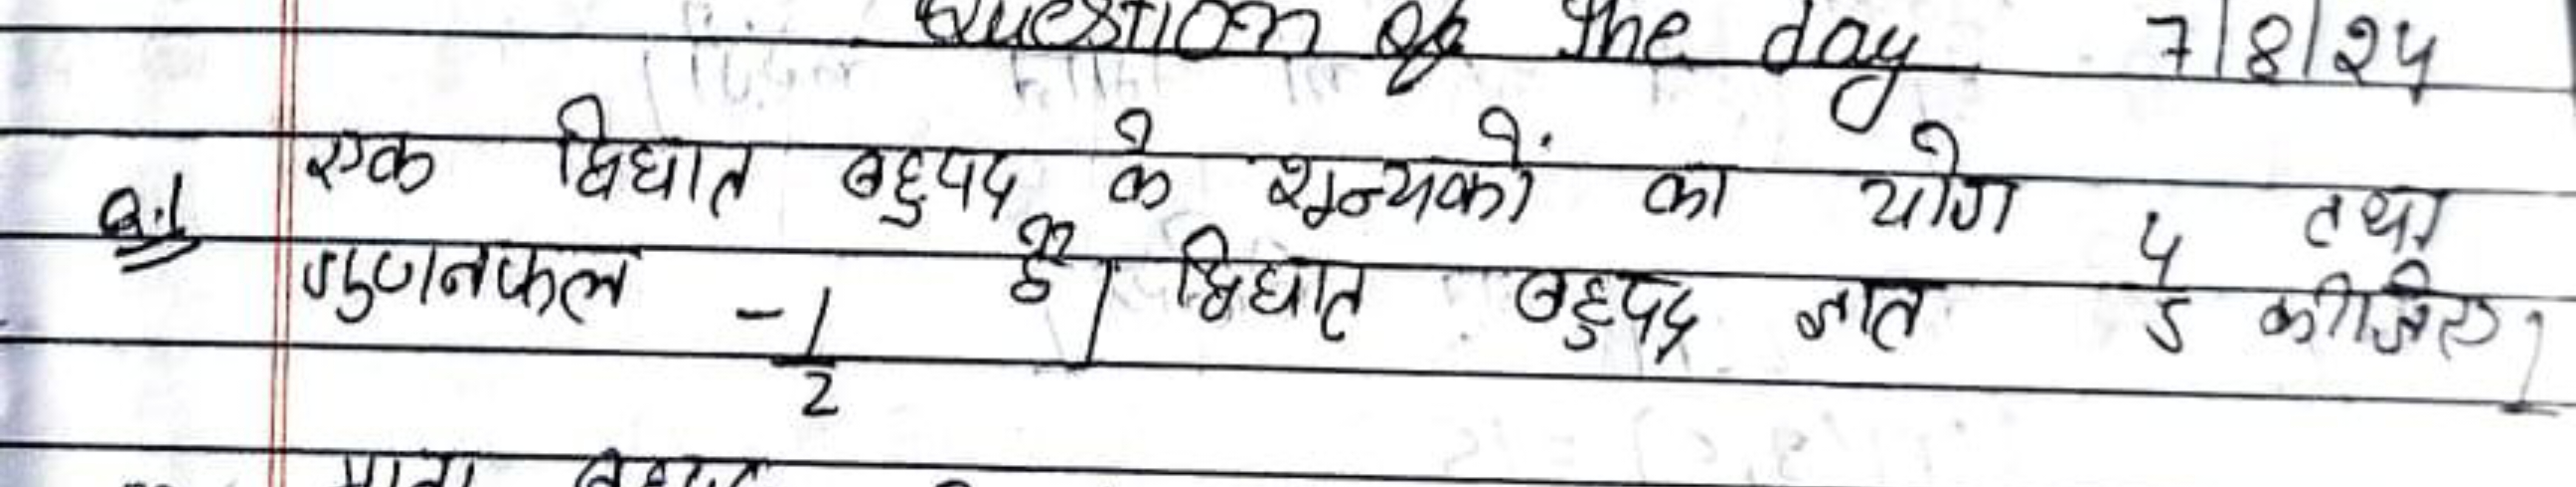 Question of the day 7/8/24
Q.1 एक द्विघात बहुपद के शून्यकों का योग 4/5 तथा
गुणनफल -1/2 है। द्विघात बहुपद ज्ञात कीजिए।